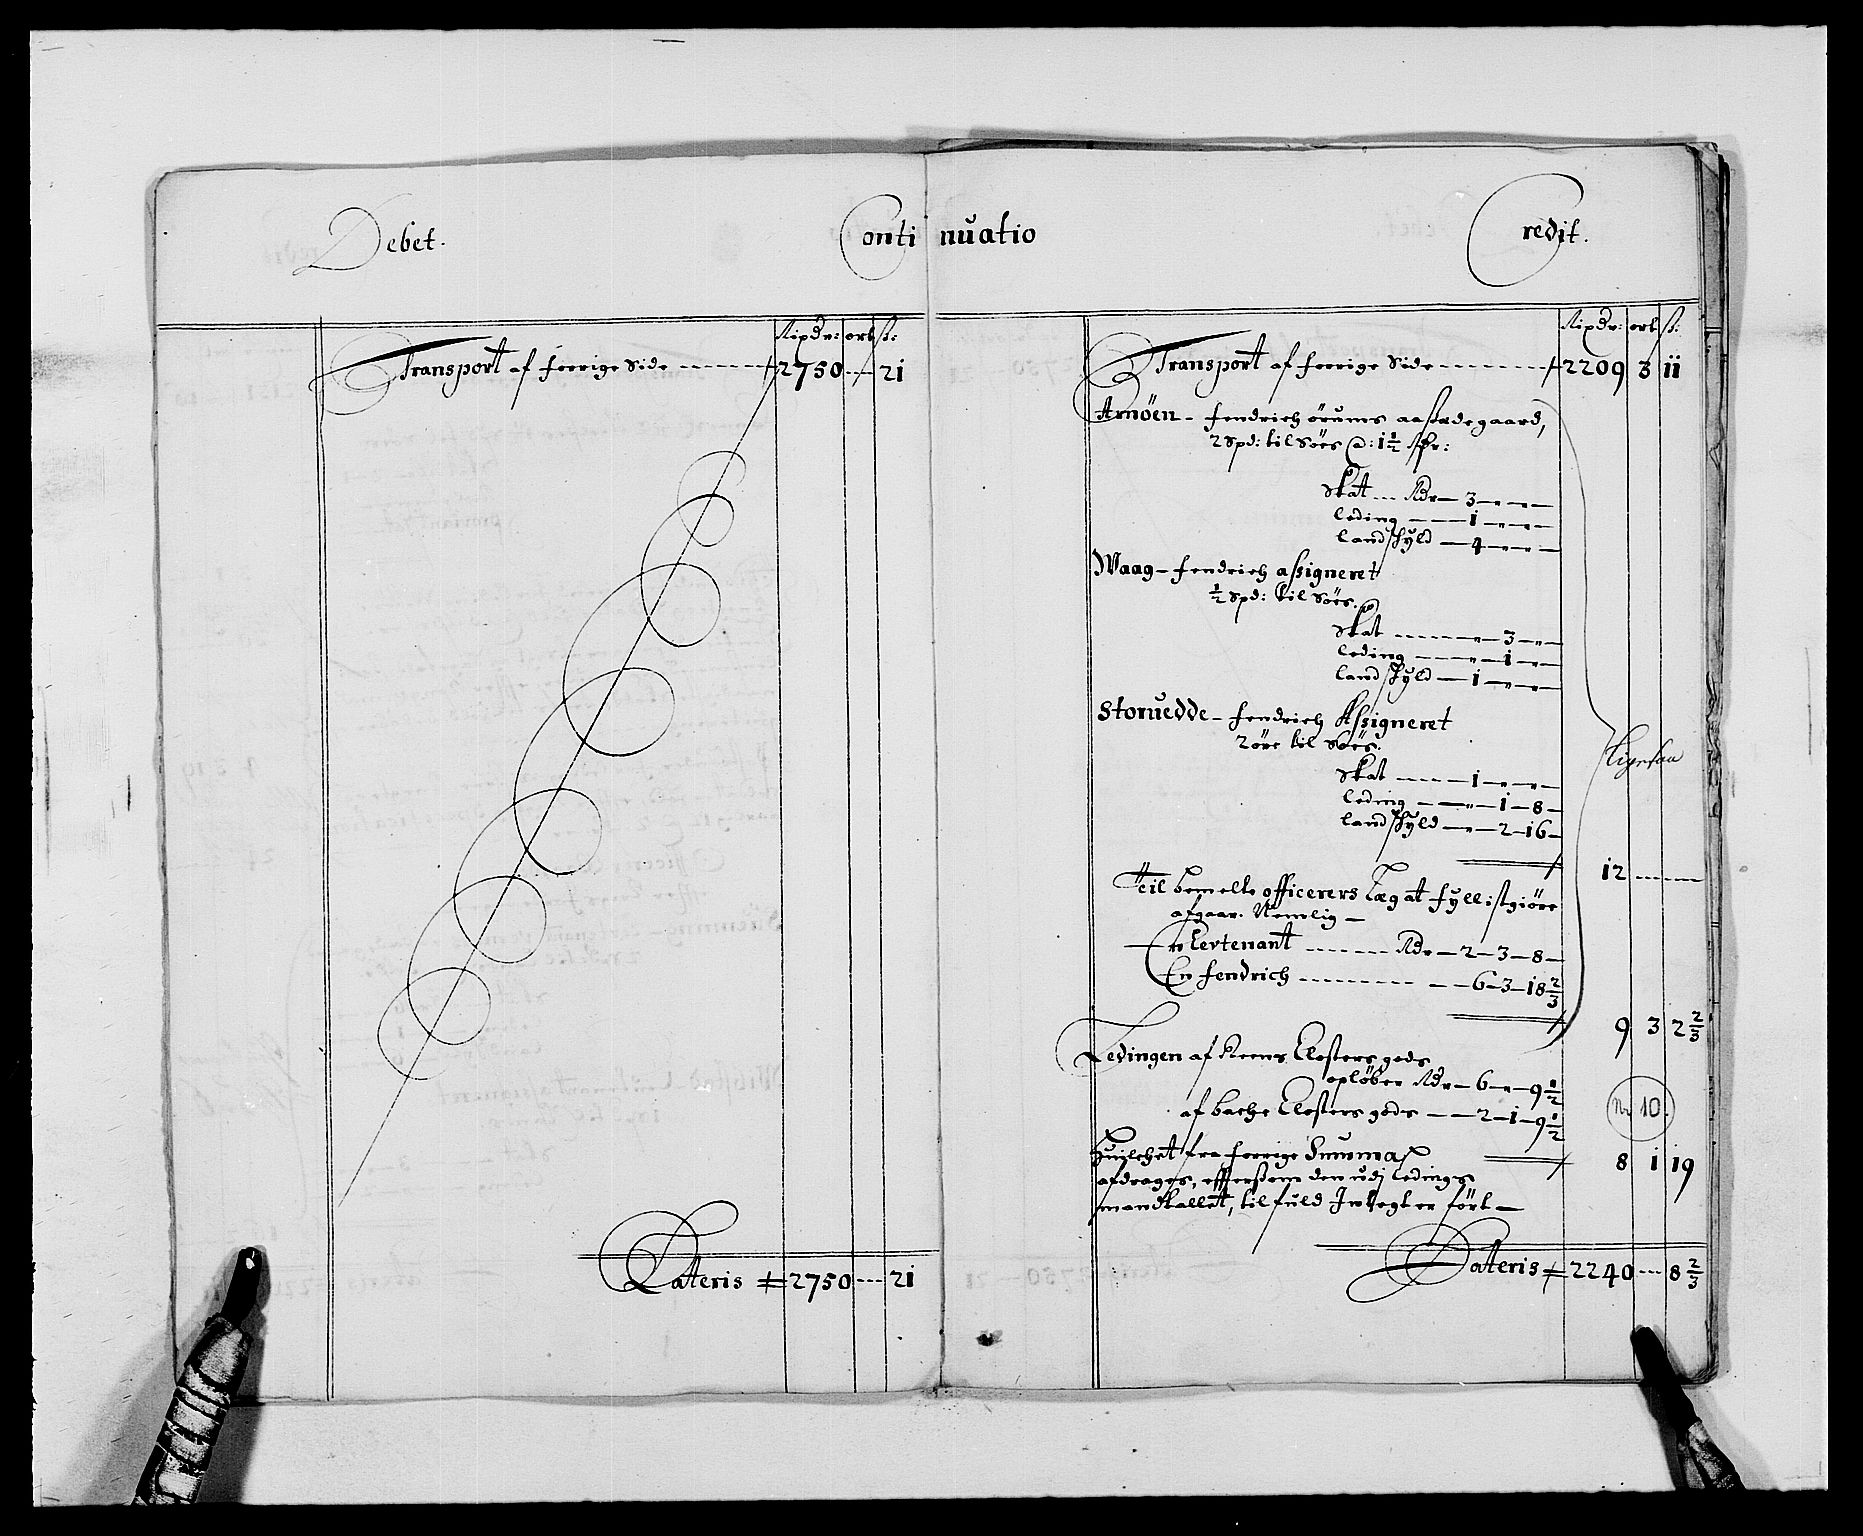 Debet.
Continuatio
Credit.
Rixdr: ort s:
Transport af forrige Side ------- 2750 --- 21
Lateris 2750 --- 21
Rixdr: ort s:
Transport af forrige Side -------- 2209 3 11
Arnöen - fendrich örums aasædegaard,
2 Spd: til Söes @: 1½ spr:
Skat ... Rdr - 3 - " - " -
leding --- 1 - " - " -
landskyld - 4 - " - " -
Waag - fendrich assigneret
½ Spd: til Söes.
Skat ------ " - 3 - " -
leding ---- " - 1 - " -
landskyld - 1 - " - " -
Storuedde - fendrich Assigneret
2 öre til Söes.
Skat ----- 1 - " - " -
leding --- " - 1 - 8 -
landskyld - " - 2 - 16 -
12 ------
Til bemelte officerers Læg at fyllistgiöre
afgaar. Nemlig -
En Levtenant ------ Rdr - 2 - 3 - 8 -
En fendrich --------- 6 - 3 - 18 2/3
9 3 2 2/3
Ledingen af Reens Closters gods
oplöber Rdr - 6 - " - 9 ½
af bache Closters gods -- 2 - 1 - 9 ½
Nr 10.
Huilchet fra forrige Summa 8 1 19
afdrages, effterssom den udj ledings
mandtallet, til fuld Indtegt er fört -
Lateris 2240 --- 8 2/3